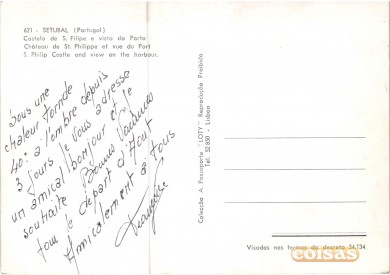 621 - SETUBAL (Portugal)
Castelo de S. Filipe e vista do Porto
Château de St. Philippe et vue du Port
S. Philip Castle and view on the harbour.
Sous une
chaleur torride
40° à l'ombre depuis
3 jours je vous adresse
un amical bonjour et je
souhaite Bonnes Vacances
tous le départ d'Aout
Amicalement à tous
Colecção A. Passaporte "LOTY" Reprodução Proibida
Tel. 52 850 - Lisboa
Visados nos termos do decreto 34.134
coisas